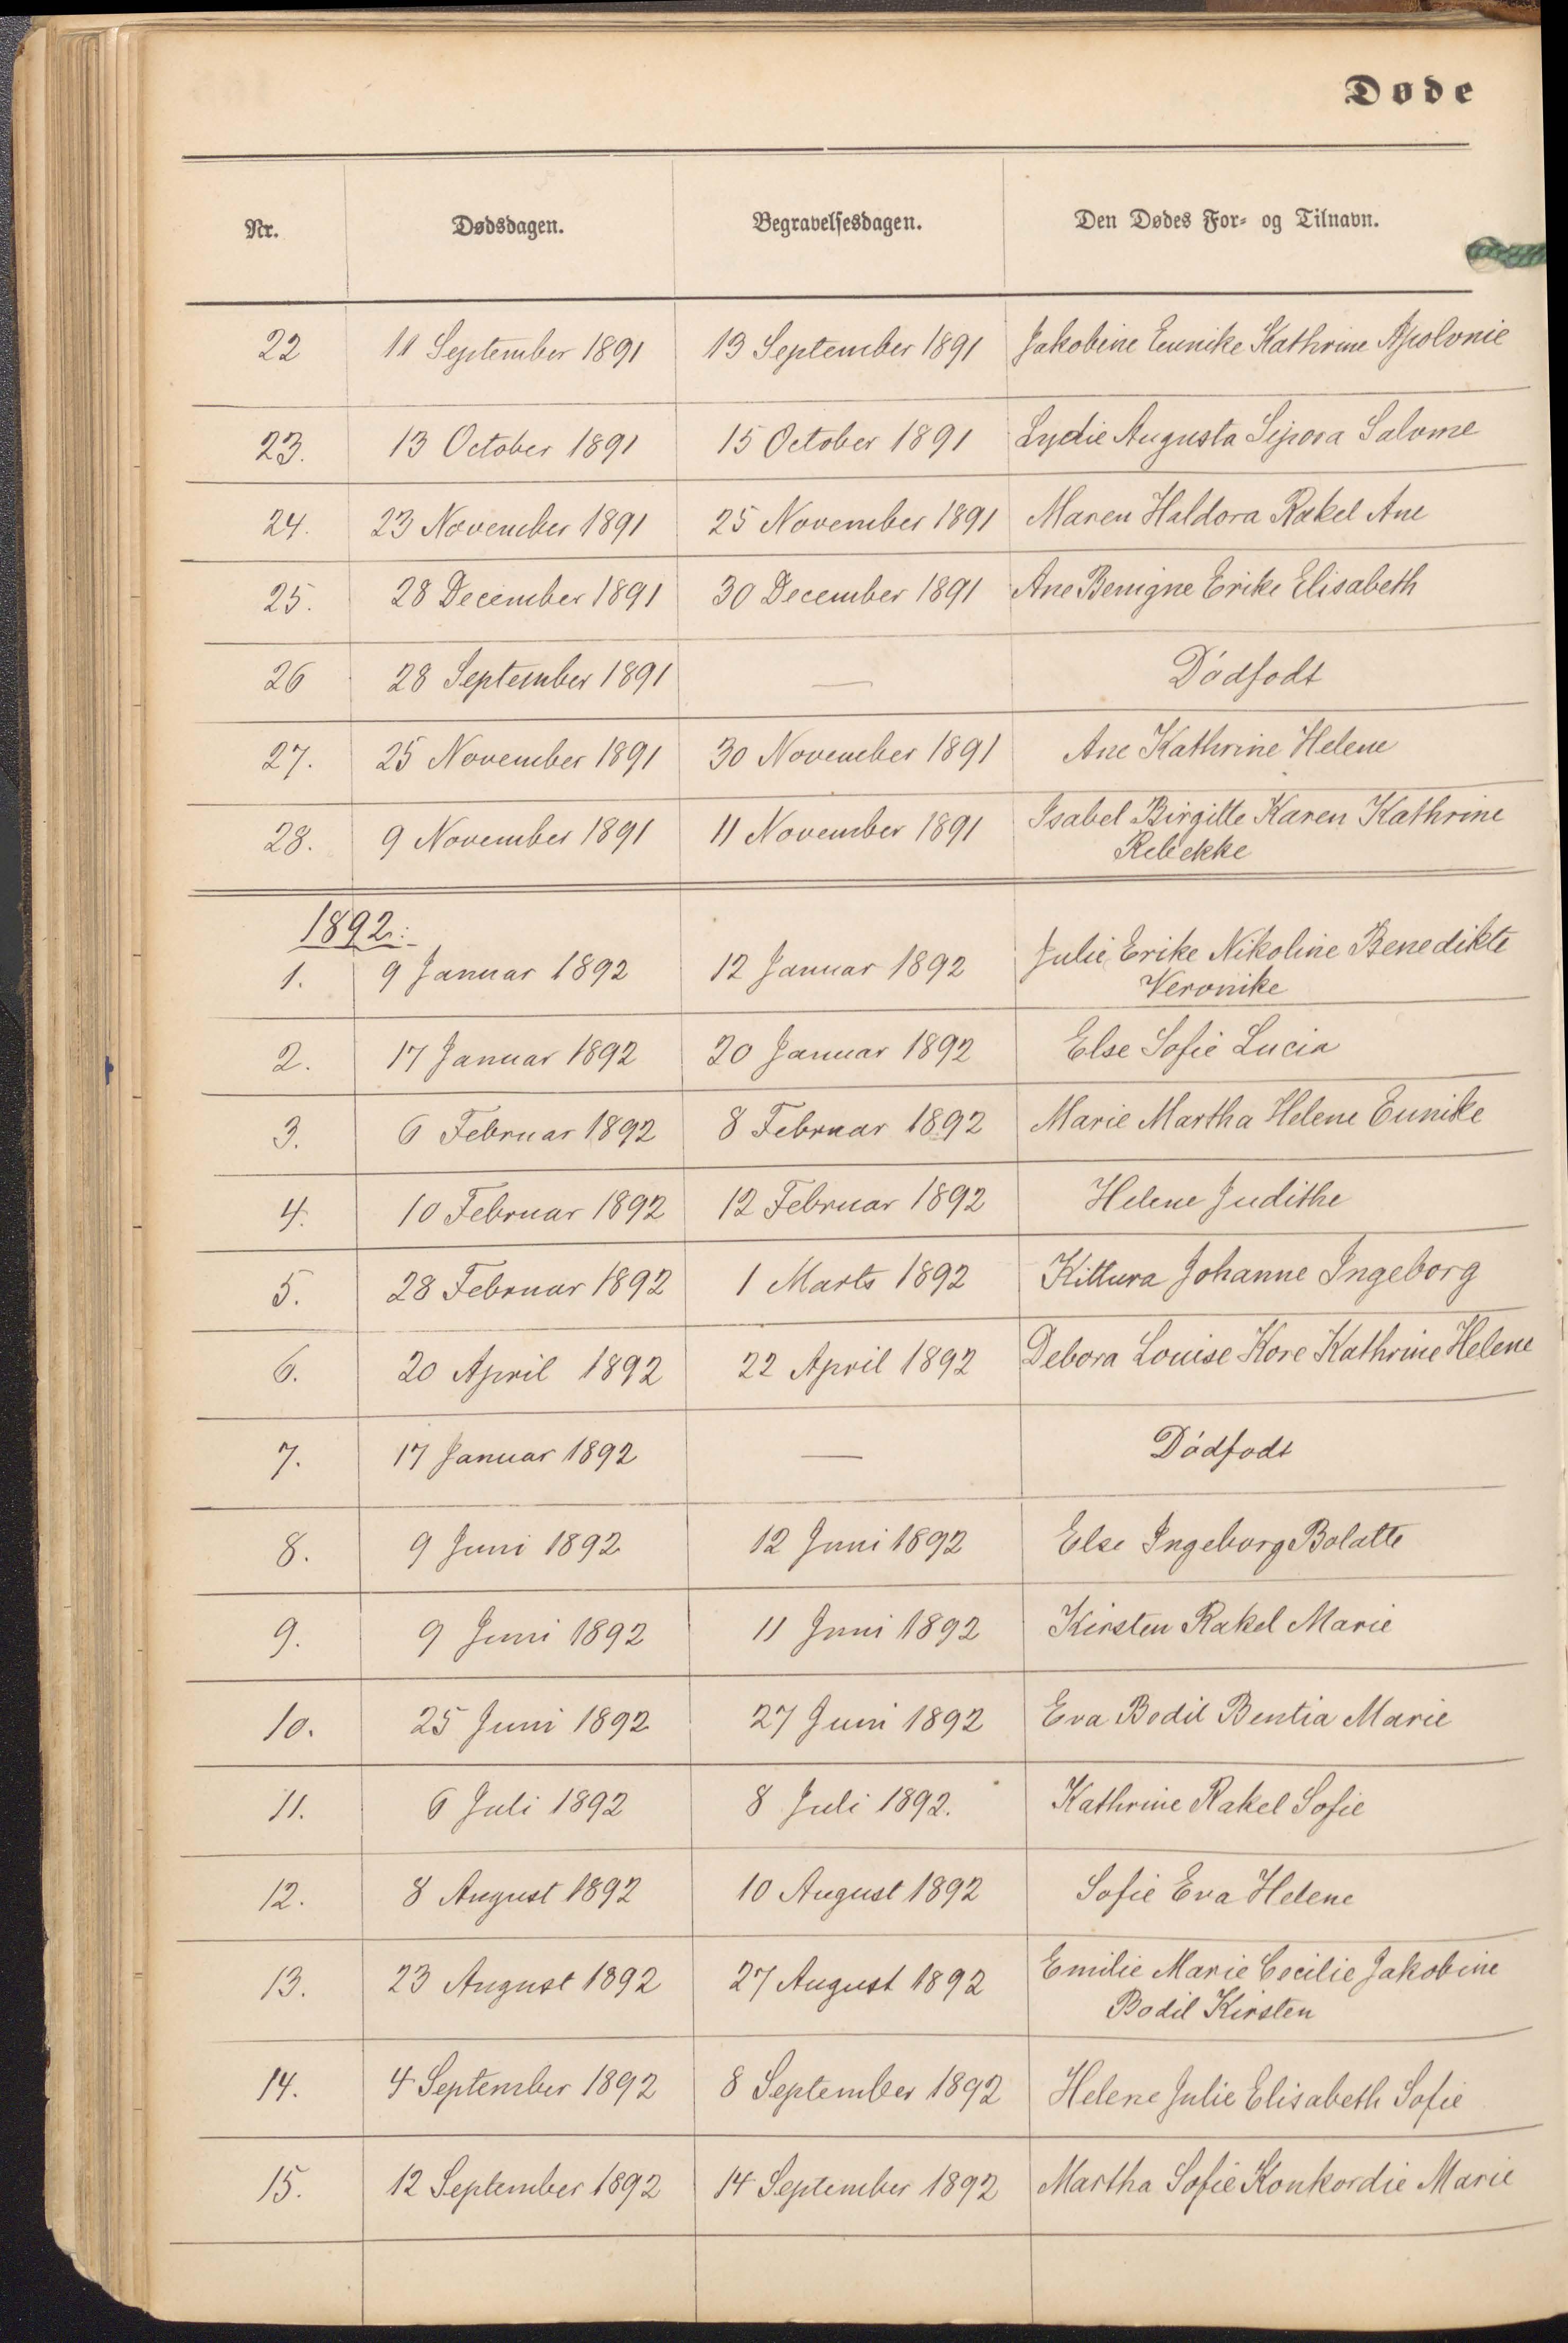 Døde
Nr. Dødsdagen. Begravelsesdagen. Den Dødes For- og Tilnavn.
22 11 September 1891 13 September 1891 Jakobine Eunike Kathrine Apolonie
23. 13 October 1891 15 October 1891 Lydie Augusta Sipora Salome
24. 23 November 1891 25 November 1891 Maren Haldora Rakel Ane
25. 28 December 1891 30 December 1891 Ane Benigne Erike Elisabeth
26 28 September 1891 — Dödfödt
27. 25 November 1891 30 November 1891 Ane Kathrine Helene
28. 9 November 1891 11 November 1891 Isabel Birgitte Karen Kathrine
Rebekke
1892:
1. 9 Januar 1892 12 Januar 1892 Julie Erike Nikoline Benedikte
Veronike
2. 17 Januar 1892 20 Januar 1892 Else Sofie Lucia
3. 6 Februar 1892 8 Februar 1892 Marie Martha Helene Eunike
4. 10 Februar 1892 12 Februar 1892 Helene Judithe
5. 28 Februar 1892 1 Marts 1892 Kittura Johanne Ingeborg
6. 20 April 1892 22 April 1892 Debora Louise Kore Kathrine Helene
7. 17 Januar 1892 — Dödfödt
8. 9 Juni 1892 12 Juni 1892 Else Ingeborg Bolatte
9. 9 Juni 1892 11 Juni 1892 Kirsten Rakel Marie
10. 25 Juni 1892 27 Juni 1892 Eva Bodil Bentia Marie
11. 6 Juli 1892 8 Juli 1892. Kathrine Rakel Sofie
12. 8 August 1892 10 August 1892 Sofie Eva Helene
13. 23 August 1892 27 August 1892 Emilie Marie Cecilie Jakobine
Bodil Kirsten
14. 4 September 1892 8 September 1892 Helene Julie Elisabeth Sofie
15. 12 September 1892 14 September 1892 Martha Sofie Konkordie Marie